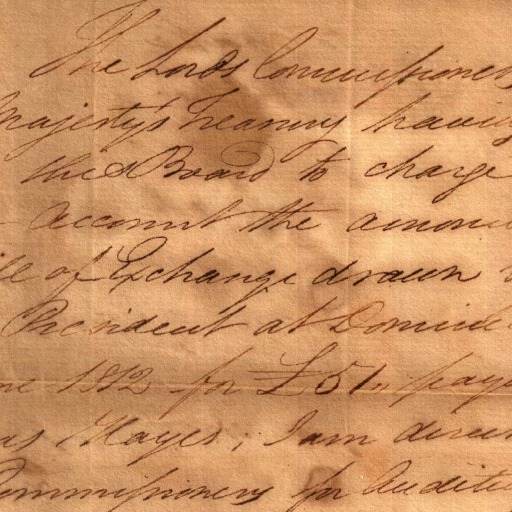 The Lords Commissioners
Majesty's Treasury having
this Board to charge
Account the amoun
ill of Exchange drawn
President at Domini
ne 1812 for £51, pay
as Hayes; I am direc
Commissioners for Auditi